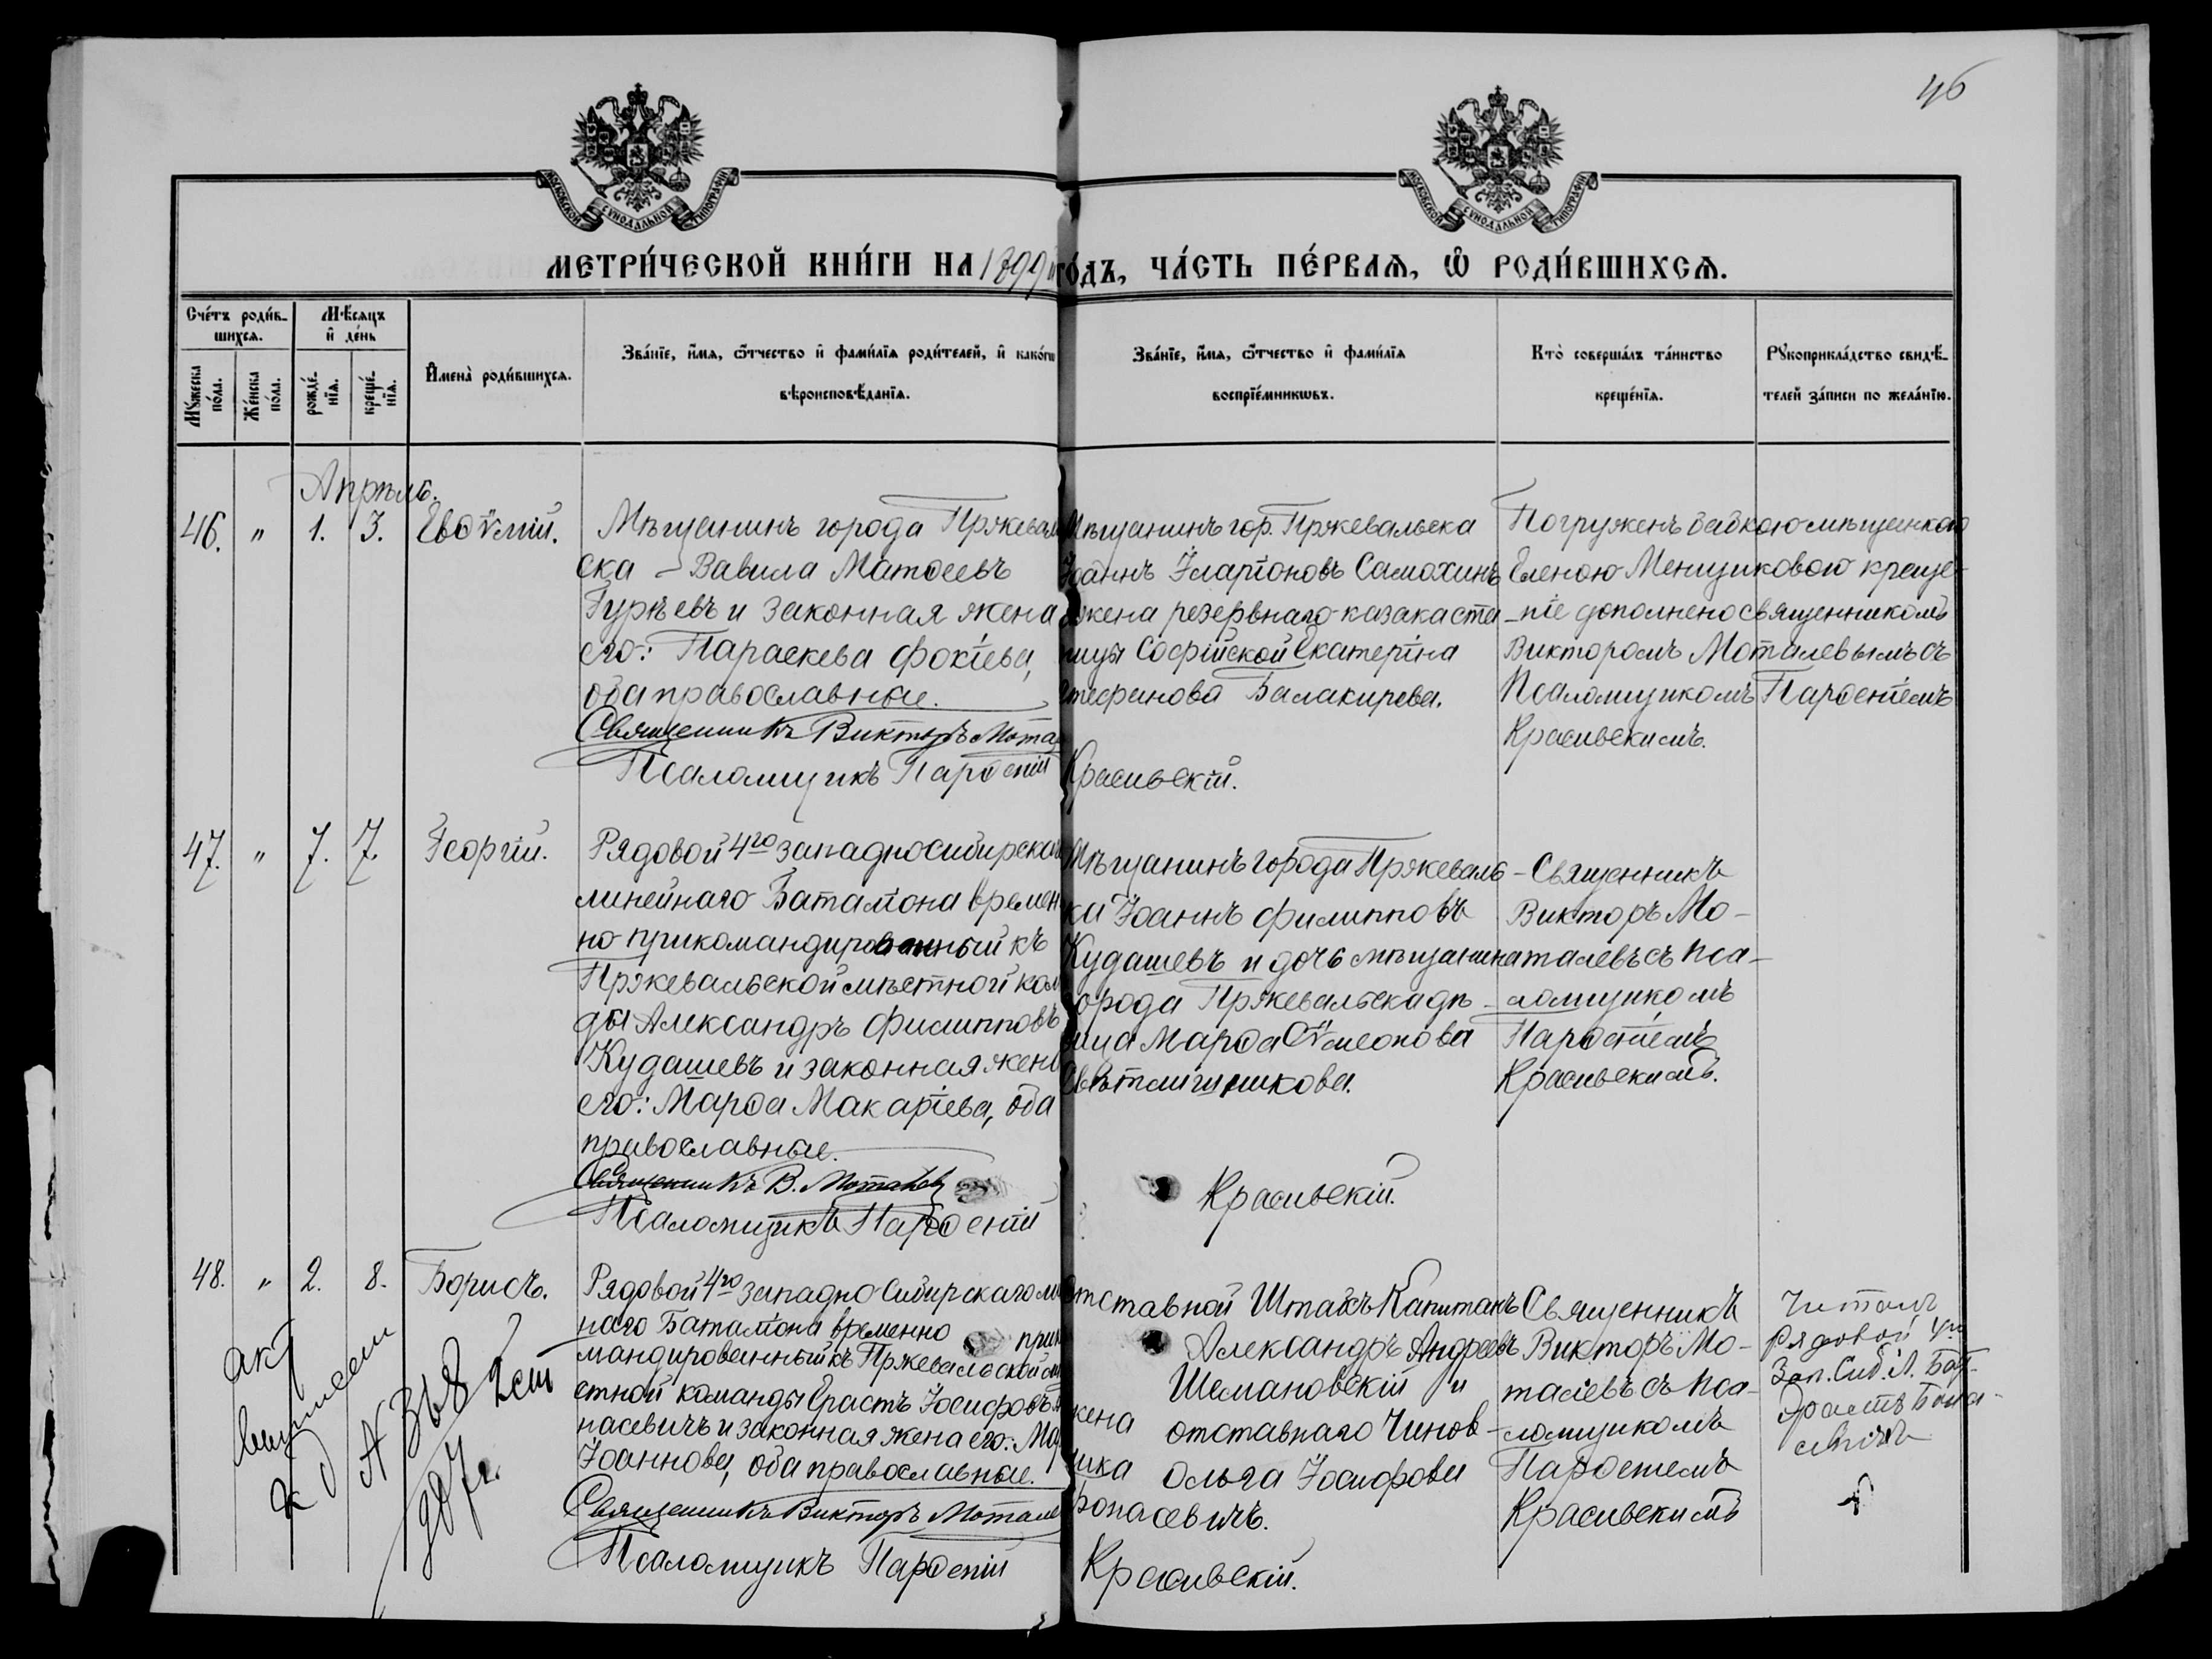 46
МОСКОВСКОЙ СѴНОДАЛЬНОЙ ТИПОГРАФІИ
МОСКОВСКОЙ СѴНОДАЛЬНОЙ ТИПОГРАФІИ
МЕТРИ́ЧЕСКОЙ КНИ́ГИ НА 1899 ГО́ДЪ, ЧА́СТЬ ПЕ́РВАѦ, Ѡ РОДИ́ВШИХСѦ.
Сче́тъ роди́в-
шихсѧ.
Мѣ́сѧцъ
и҆ де́нь
Мꙋ́жеска
по́ла.
Же́нска
по́ла.
рожде́-
нїѧ.
креще́-
нїѧ.
И҆мена̀ роди́вшихсѧ.
Зва́нїе, и҆́мѧ, ѻ҆́тчество и҆ фами́лїѧ роди́телей, и҆ како́гѡ
вѣроисповѣ́данїѧ.
Зва́нїе, и҆́мѧ, ѻ҆́тчество и҆ фами́лїѧ
воспрїе́мникѡвъ.
Кто̀ соверша́лъ та́инство
креще́нїѧ.
Рꙋкоприкла́дство свидѣ́-
телей за́писи по жела́нїю.
Апрѣль.
46. " 1. 3. Евѳѵмій.
Мѣщанинъ города Пржеваль
ска - Вавила Матѳеевъ
Гурѣевъ и законная жена
его: Параскева Фокіева,
оба православные.
Священникъ Викторъ Мота
Псаломщикъ Парѳеній
Мѣщанинъ гор. Пржевальска
Іоаннъ Иларіоновъ Самохинъ
жена резервнаго казака ста
ницы Софійской Екатерина
Стефанова Балакирева.
Красивскій.
Погруженъ бабкою мѣщанкою
Еленою Менщиковою креще-
ніе дополнено священникомъ
Викторомъ Моталевымъ съ
Псаломщикомъ Парѳеніемъ
Красивскимъ.
47. " 7. 7. Георгій.
Рядовой 4го Западно Сибирскаго
линейнаго Баталіона времен
но прикомандированный къ
Пржевальской мѣстной ком
ды Александръ Филипповъ
Кудашевъ и законная жена
его: Марѳа Макаріева, оба
православные.
Священникъ В. Моталев
Псаломщикъ Парѳеній
Мѣщанинъ города Пржеваль
ка Іоаннъ Филипповъ
Кудашевъ и дочь мѣщанина
города Пржевальска дѣ
вица Марѳа Сѵмеонова
Свѣтличникова.
Красивскій.
- Священникъ
Викторъ Мо-
талевъ съ Пса-
ломщикомъ
Парѳеніемъ
Красивскимъ.
48. " 2. 8. Борисъ.
Рядовой 4го Западно Сибирскаго ли
наго Баталіона временно прик
мандированный къ Пржевальской мѣ
стной команды Ерастъ Іосифовъ
насевичъ и законная жена его: Мар
Іоаннова, оба православные.
Священникъ Викторъ Моталев
Псаломщикъ Парѳеній
Отставной Штабсъ Капитанъ
Александръ Андреевъ
Шемановскій и
жена отставного Чинов-
ника Ольга Іосифова
Бонасевичъ.
Красивскій.
Священникъ
Викторъ Мо-
талевъ съ Пса-
ломщикомъ
Парѳеніемъ
Красивскимъ
Читалъ
Рядовой 4го
Зап. Сиб. Л. Бат.
Эрастъ Бона-
севичъ